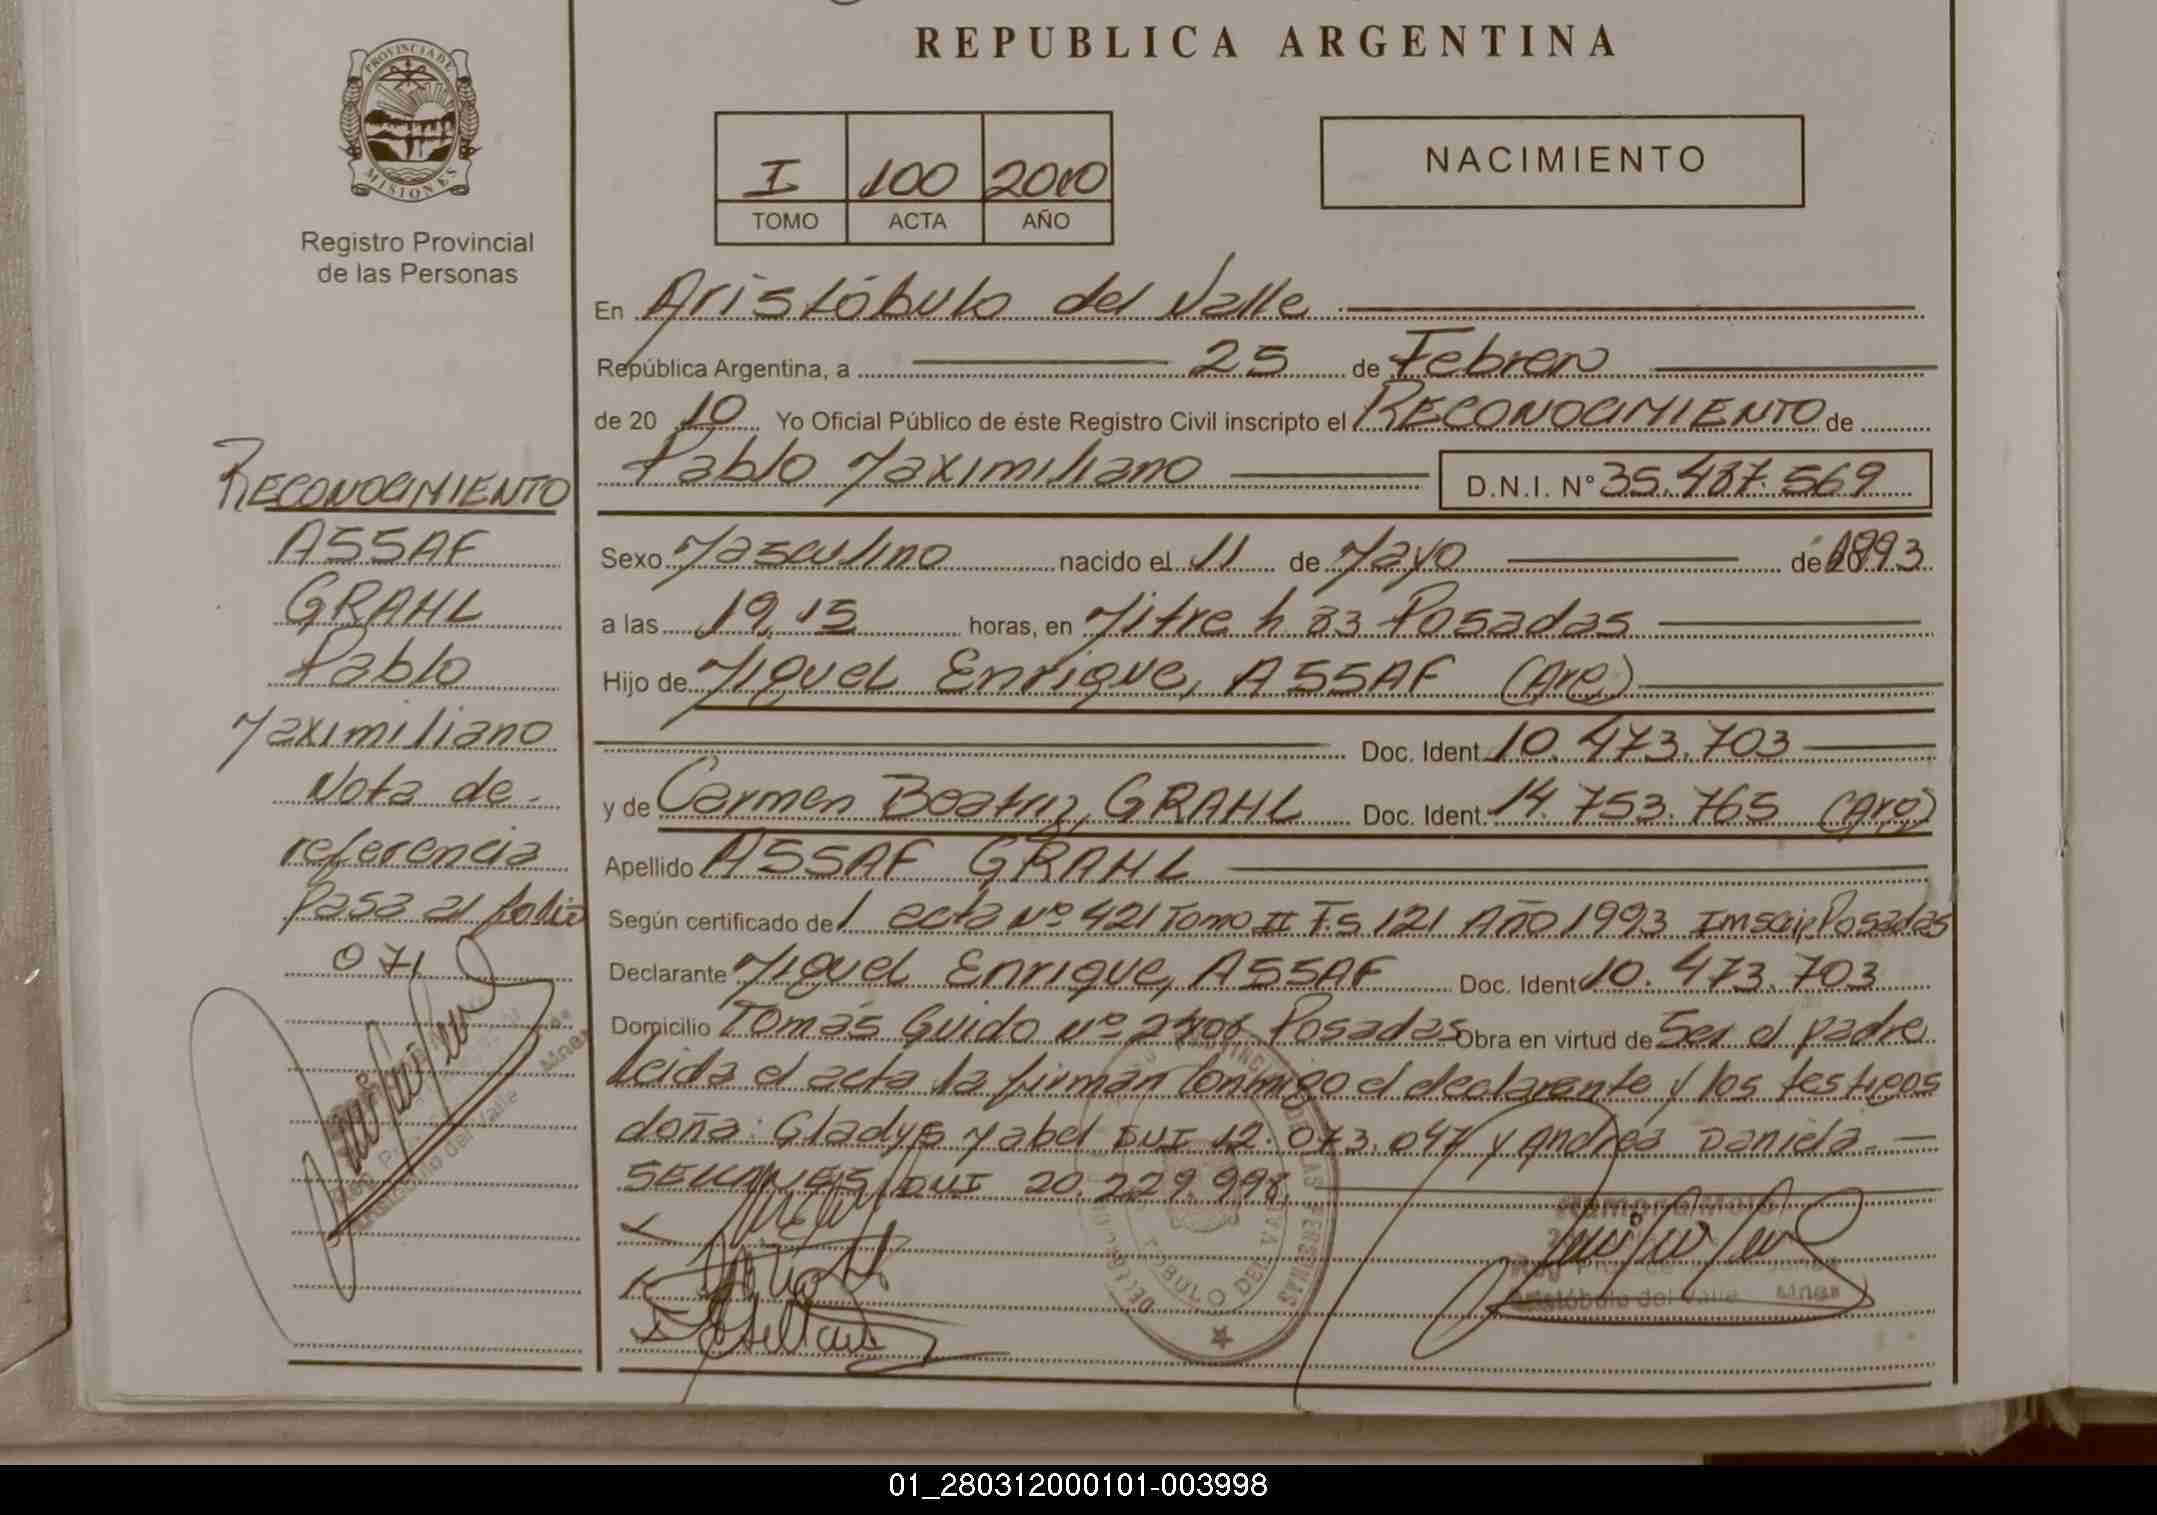 REPUBLICA ARGENTINA
PROVINCIA DE
MISIONES
Registro Provincial
de las Personas
I 100 2010
TOMO ACTA AÑO
NACIMIENTO
En Aristóbulo del Valle
República Argentina, a 25 de Febrero
de 20 10 Yo Oficial Público de éste Registro Civil inscripto el RECONOCIMIENTO de
Pablo Maximiliano D.N.I. N° 35.487.569
Sexo Masculino nacido el 11 de Mayo de 1993
a las 19,15 horas, en Mitre h 83 Posadas
Hijo de Miguel Enrique, ASSAF (Arg)
Doc. Ident. 10.473.703
y de Carmen Beatriz, GRAHL Doc. Ident. 14.753.765 (Arg)
Apellido ASSAF GRAHL
Según certificado de / acta Nº 421 Tomo II Fs 121 Año 1993 Inscrip Posadas
Declarante Miguel Enrique, ASSAF Doc. Ident 10.473.703
Domicilio Tomás Guido Nº Posadas Obra en virtud de Ser el padre
Leida el acta la firman conmigo el declarante y los testigos
doña: Gladys Mabel DNI 12.073.047 y Andrea Daniela.
DNI 20.229.998
RECONOCIMIENTO
ASSAF
GRAHL
Pablo
Maximiliano
Nota de
referencia
Pasa al folio
071
Aristóbulo del Valle Mnes
01_280312000101-003998